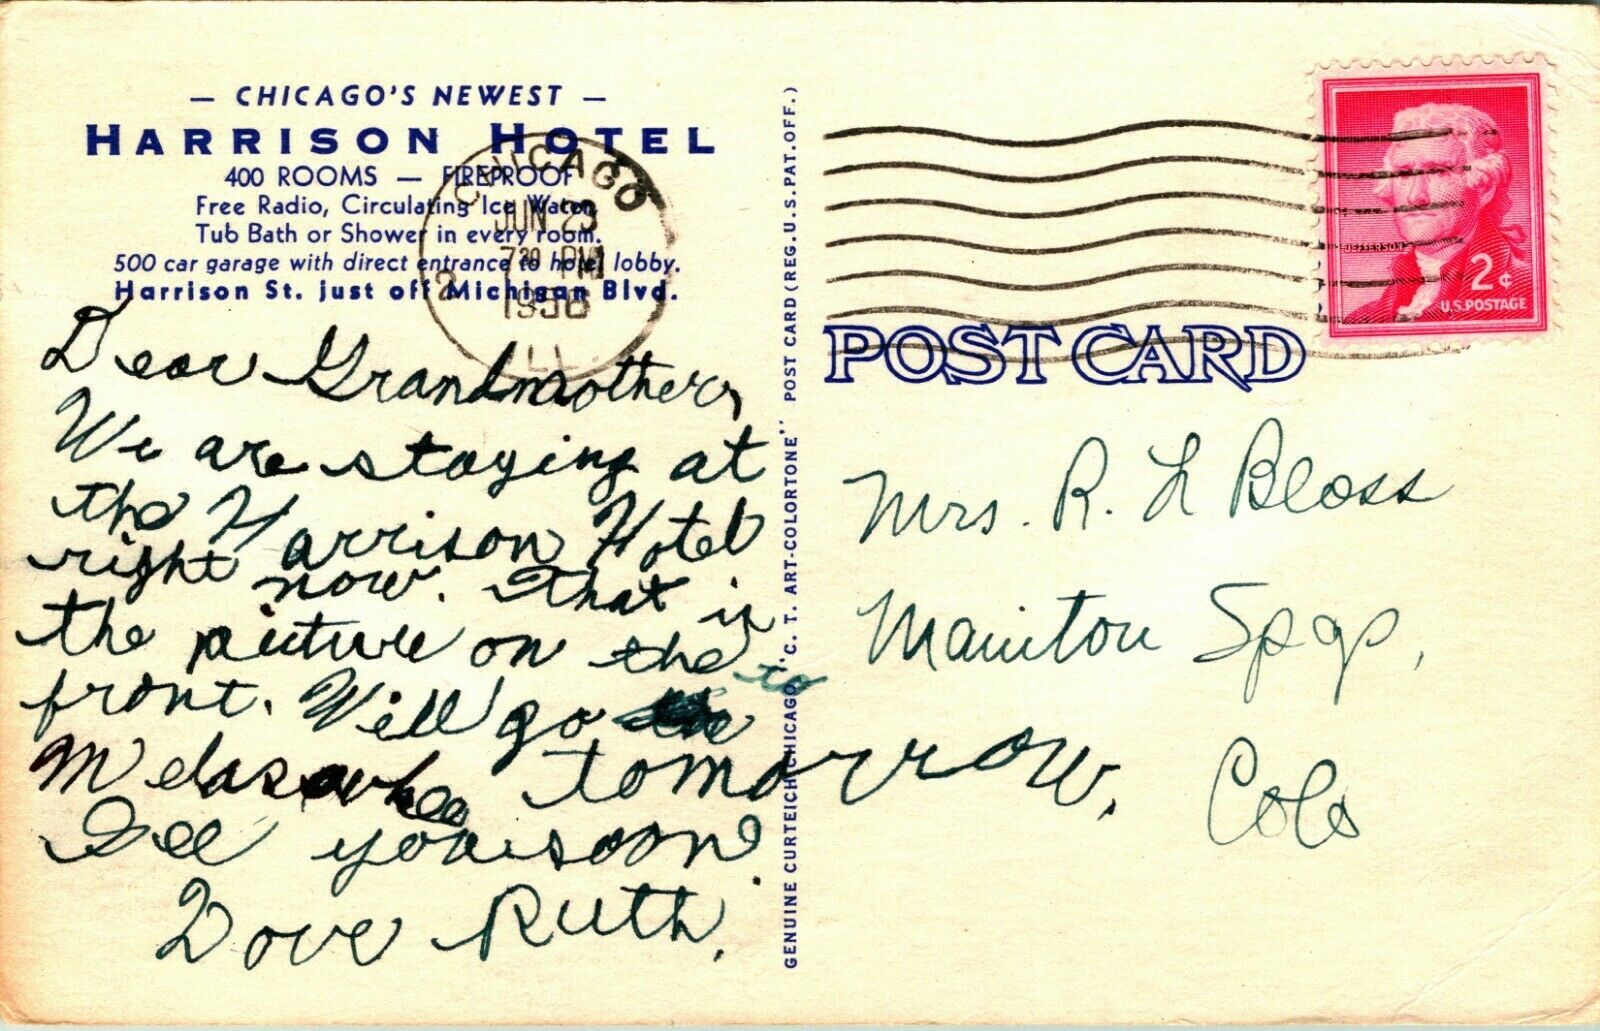 — CHICAGO'S NEWEST —
HARRISON HOTEL
400 ROOMS — FIREPROOF
Free Radio, Circulating Ice Water,
Tub Bath or Shower in every room.
500 car garage with direct entrance to hotel lobby.
Harrison St. just off Michigan Blvd.
CHICAGO
JUN 29
7 30 PM
1956
2
ILL.
Dear Grandmother,
We are staying at
the Harrison Hotel
right now. That is
the picture on the
front. Will go to
tomorrow.
See you soon.
Love Ruth.
GENUINE CURTEICH-CHICAGO "C. T. ART-COLORTONE" POST CARD (REG. U. S. PAT. OFF.)
POST CARD
JEFFERSON
2¢
U.S. POSTAGE
Mrs. R. L Bloss
Manitou Spgs,
Colo